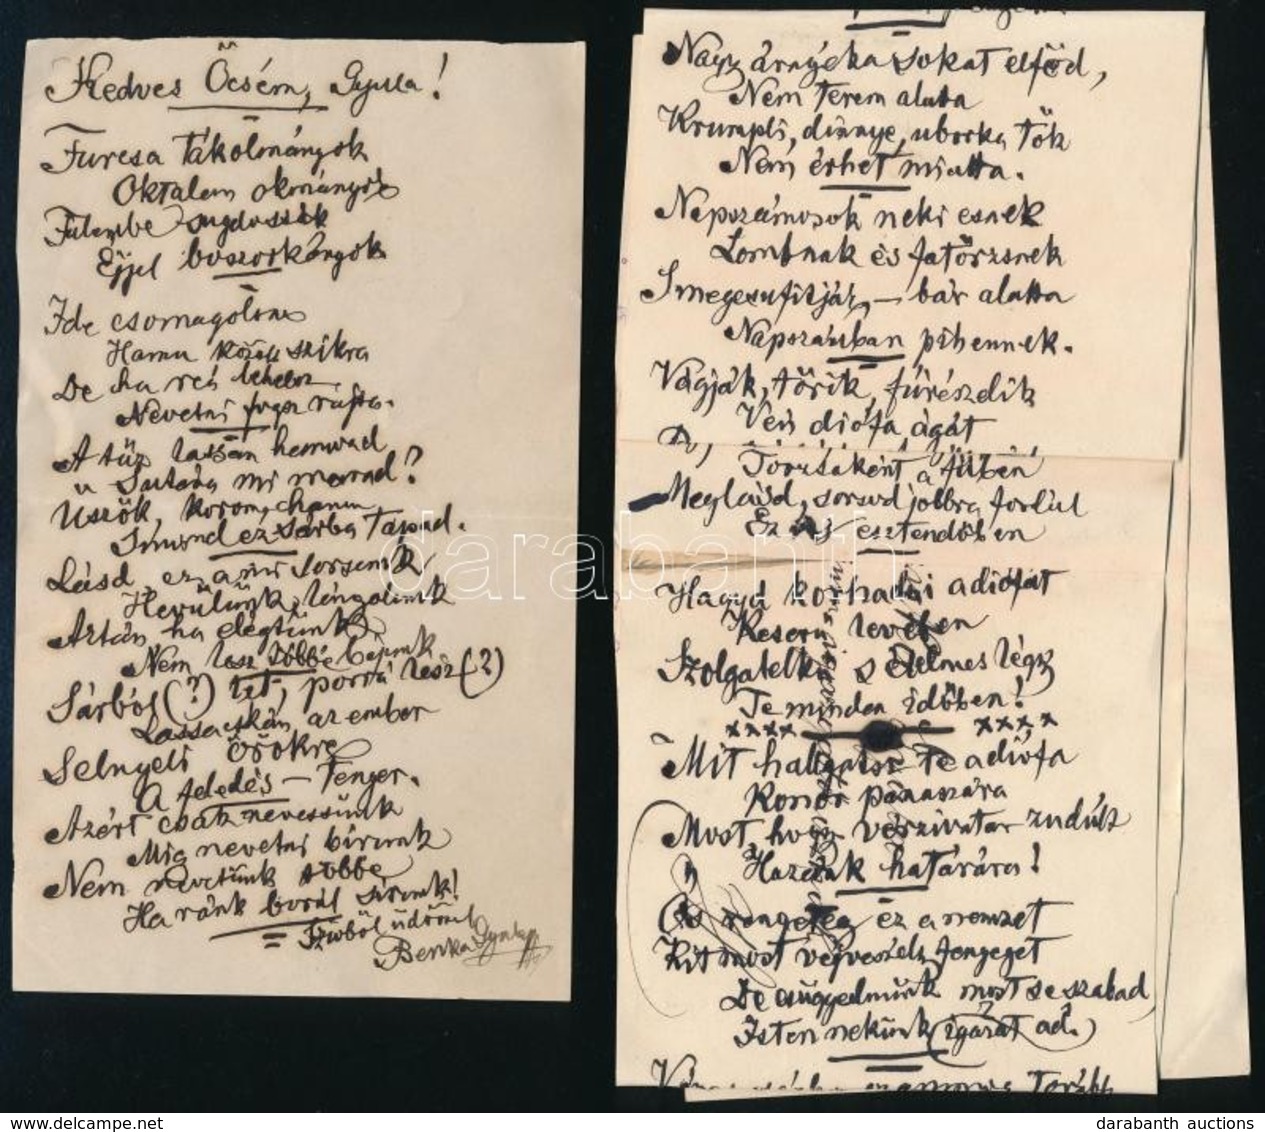 Kedves Öcsém, Gyula!
Furcsa tákolmányok
Oktalan okmányok
Fülembe sugdossák
Éjjel boszorkányok
Ide csomagolva
Hamu közé szikra
De ha reá lehelsz
Nevetni fogsz rajta.
A tűz lassan hamvad
S utána mi marad?
Üszök, korom, hamu
S mind ez sárba tapad.
Lásd, ez a mi sorsunk
Hevülünk, lángolunk
Aztán ha elégtünk,
Nem lesz többé bájunk
Sárból (?) lét, porrá lész (?)
Lassacskán az ember
Selnyeli örökre
A feledés – tenger.
Azért csak nevessünk
Míg nevetni bírunk
Nem nevetünk többé
Ha ránk borúl sírunk!
Szívből üdvözöl
Benka Gyula
Nagy árnyéka sokat elföd,
Nem terem alatta
Krumpli, dinnye, uborka, tök
Nem érhet miatta.
Napszámosok neki esnek
Lombnak és fatörzsnek
S megcsufitják, – bár alatta
Napszázban pihennek.
Vágják, törik, fürészelik
Vén diófa ágát
Torzsaként a fűben
Meglásd, sorsod jobbra fordul
Ez új esztendőben
Hagyd korhadni a diófát
Keserű levében
Szolgalelkű s éltelmes légy
Te minden időben!
xxxx xxxx
Mit hallgatsz te a diófa
Konor panaszára
Most hogy vérzivatar zudúlt
Hazánk határára!
És rengeteg ez a nemzet
Kit most végveszély fenyeget
De csüggednünk most se szabad
Isten nekünk (igazat ad.)
darabanth
darabanth auctions